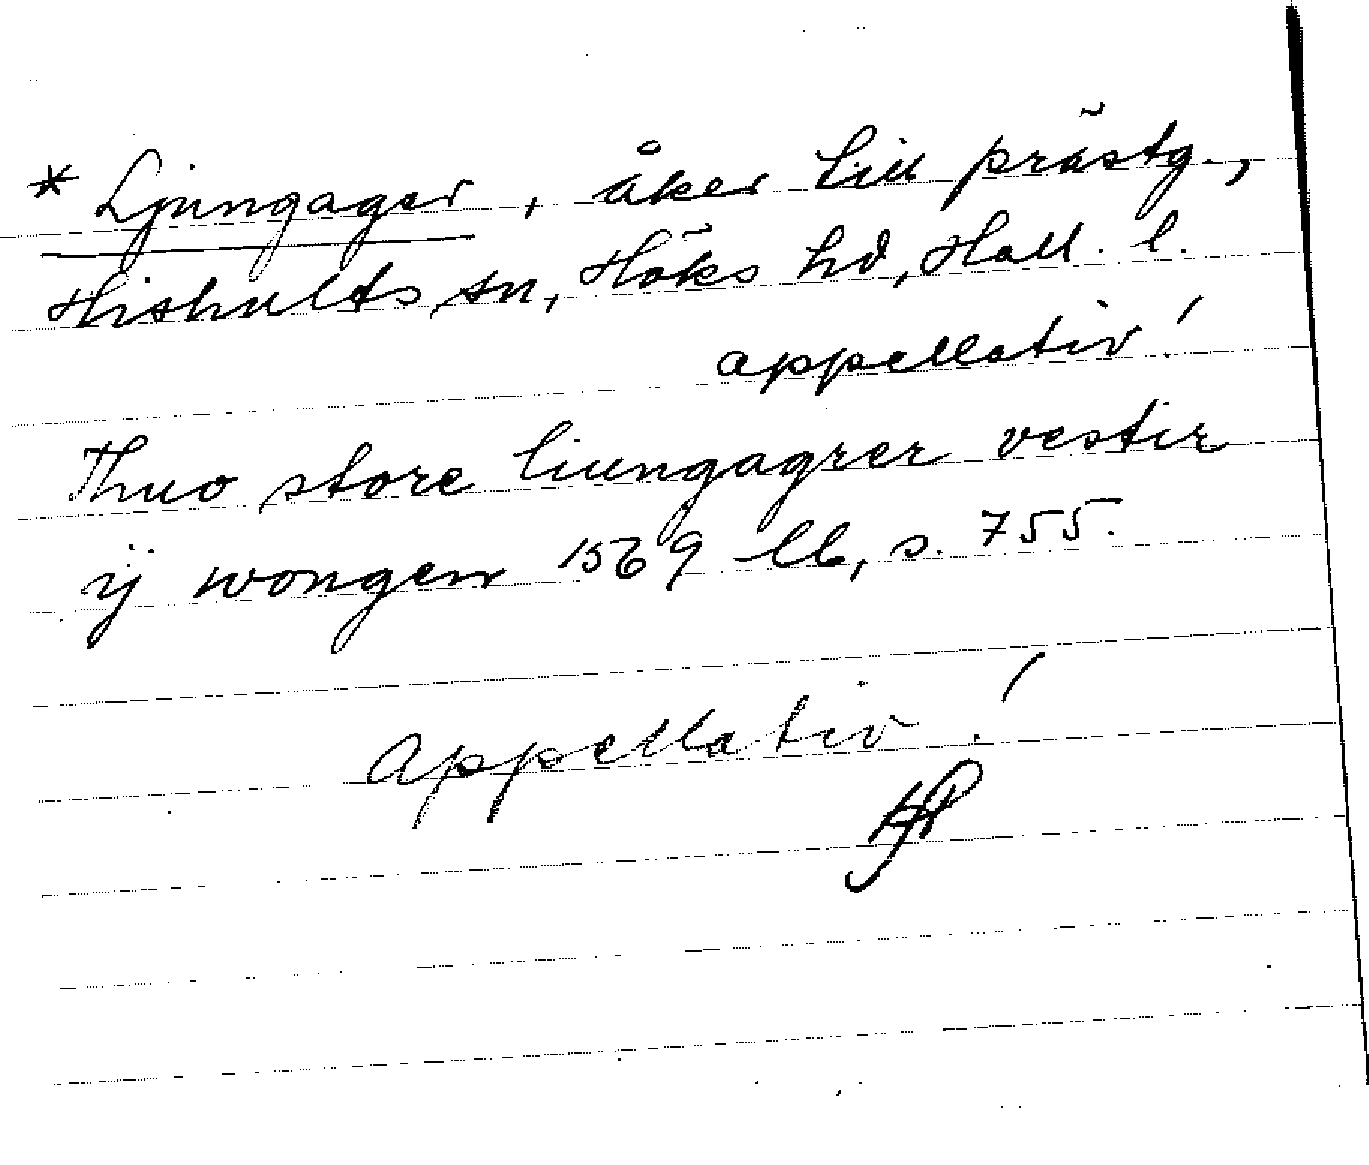 * Ljungager, åker till prästg.,
Hishults sn, Höks hd, Hall. l.
appellativ!
Thuo store liungagrer vestir
ij wongen 1569 Llb, s. 755.
Appellativ!